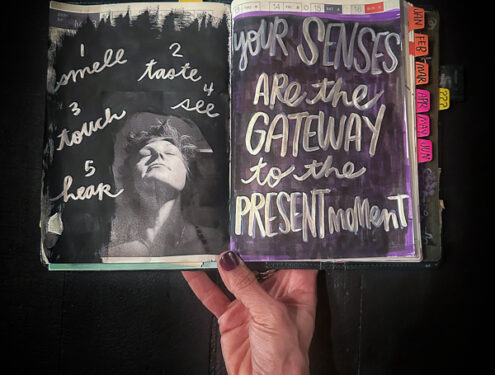 1
smell
2
taste
3
touch
4
see
5
hear
YOUR SENSES
ARE the
GATEWAY
to the
PRESENT moment
JAN
FEB
MAR
APR
MAY
JUN